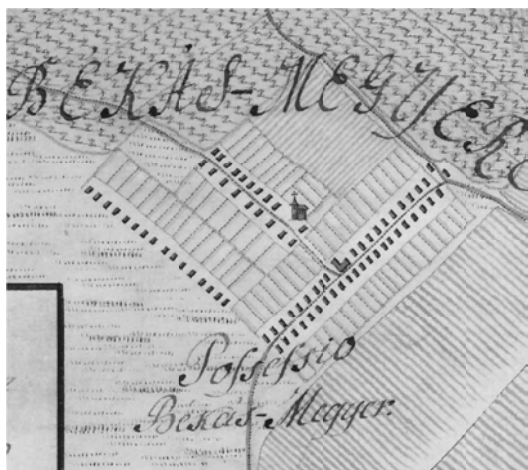 BÉKÁS-MEGYER
Possessio
Békás-Megyer.